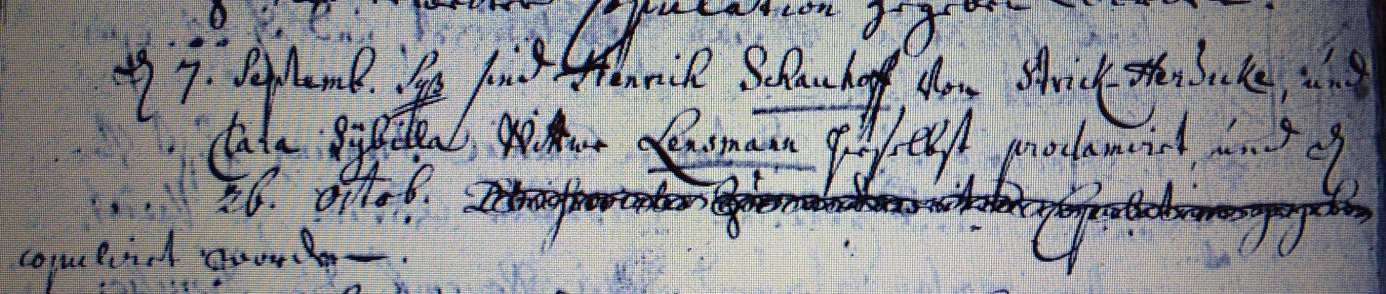 Copulation gegeben
d 7. Septemb. sind Henrich Schauhoff von Strick-Herdicke, und
Cata Sÿbilla Wittwe Lensmann hieselbst proclamirt, und d
26. octob.
copulirt worden.